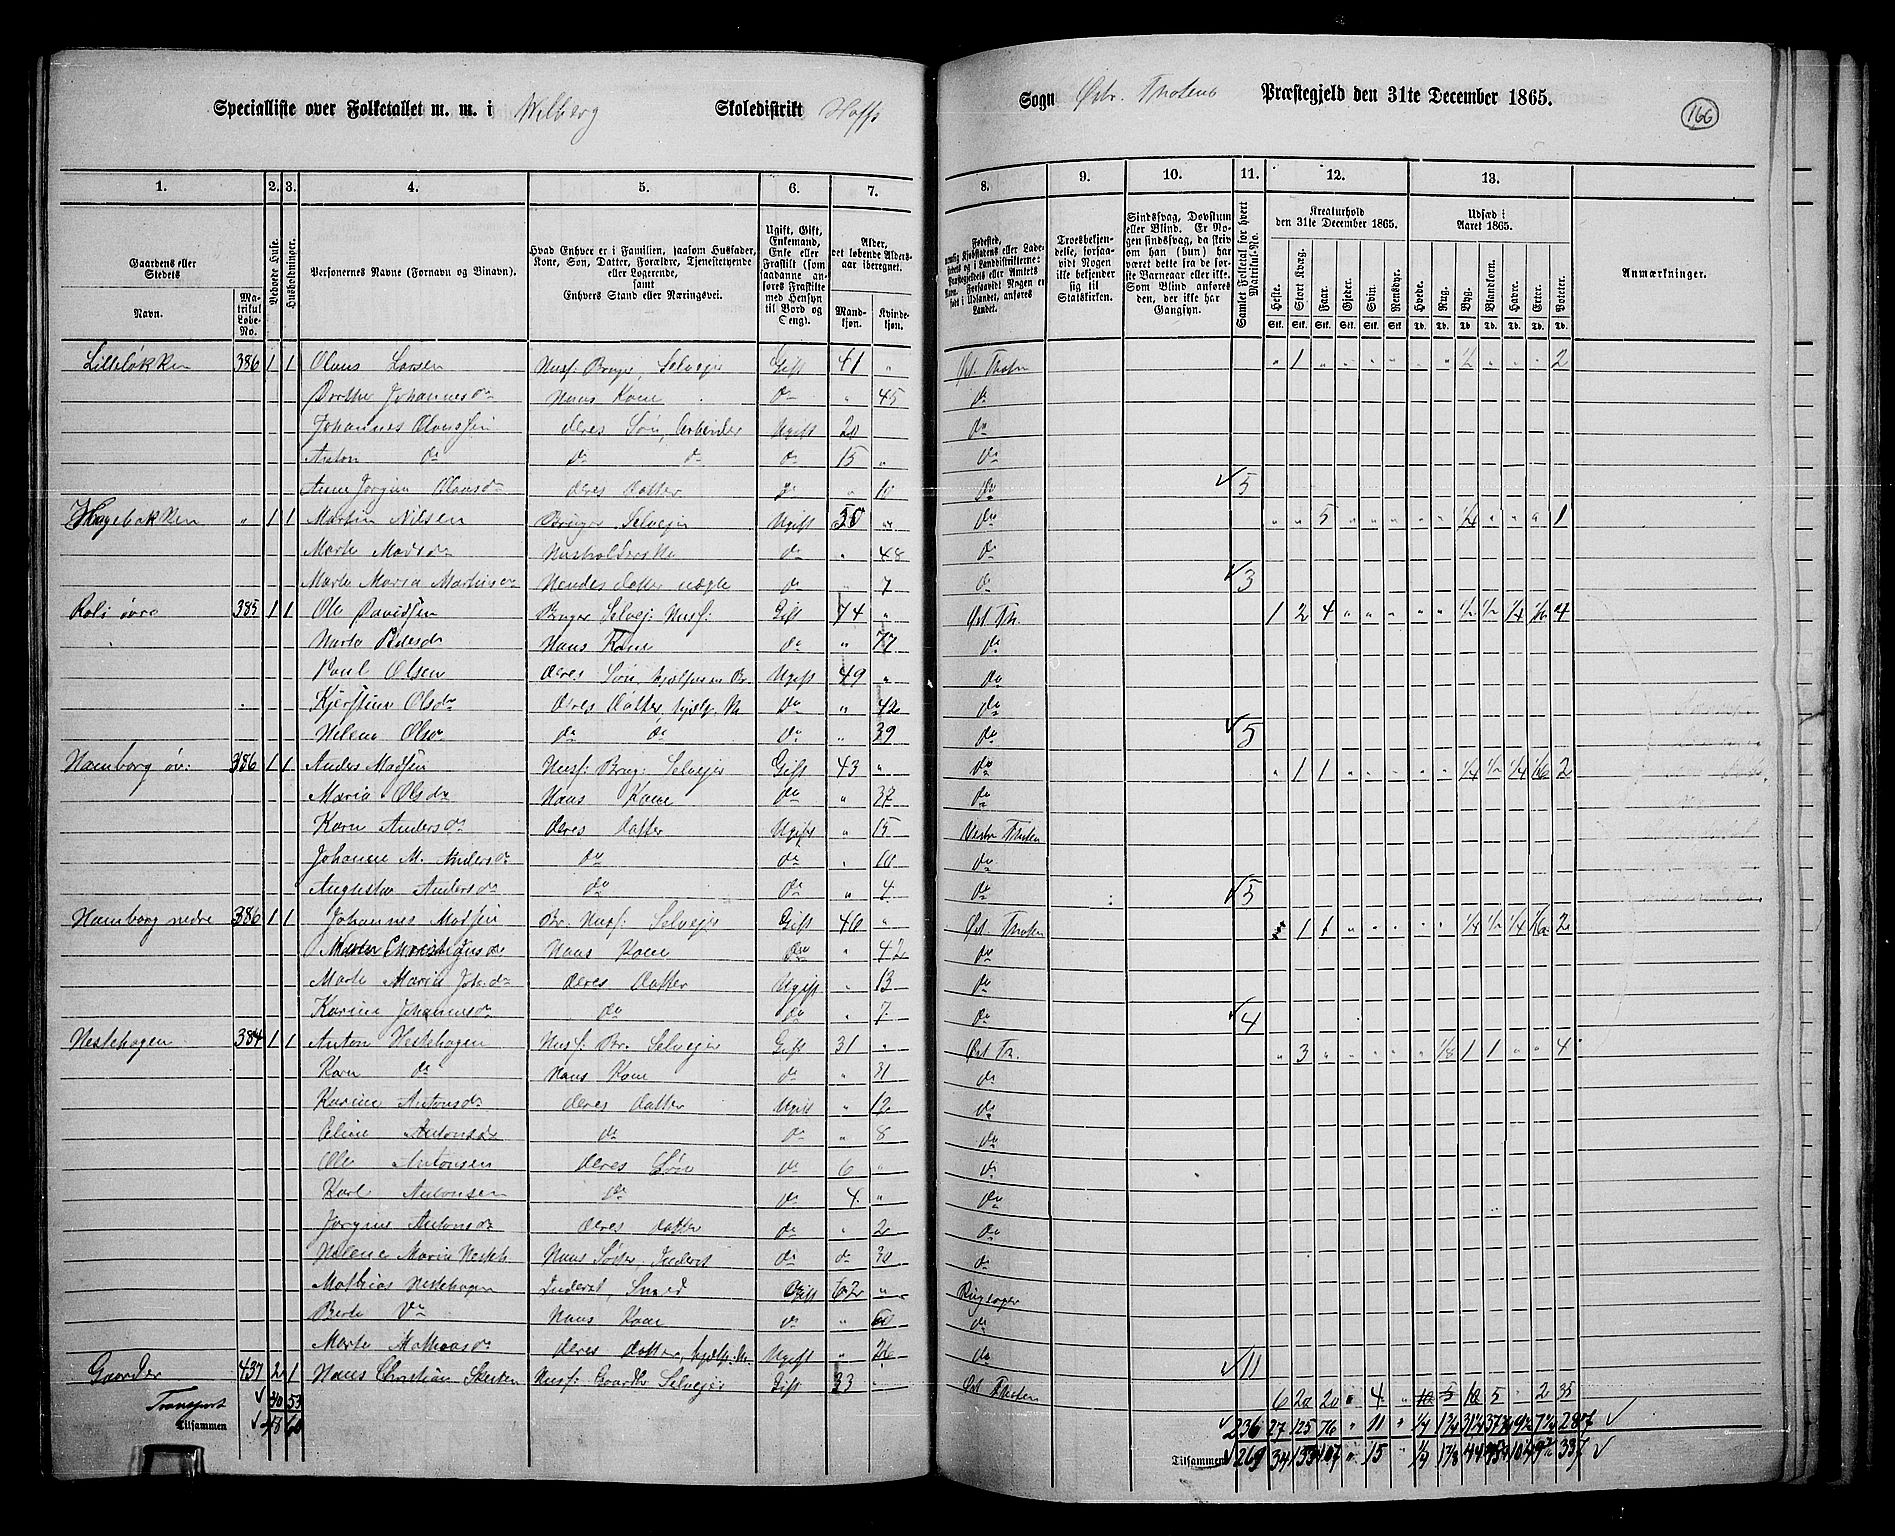 Specialliste over Folketallet m. m. i Wilberg Skoledistrikt Hoffs
Sogn Østr. Thotens Præstegjeld den 31te December 1865.
166
1. 2. 3. 4. 5. 6. 7. 8. 9. 10. 11. 12. 13.
Gaardens eller Stedets Navn.
Matrikul Løbe-No.
Beboede Huse.
Husholdninger.
Personernes Navne (Fornavn og Binavn).
Hvad Enhver er i Familien, saasom Husfader, Kone, Søn, Datter, Forældre, Tjenestetyende eller Logerende, samt Enhvers Stand eller Næringsvei.
Ugift, Gift, Enkemand, Enke eller Fraskilt (som saadanne anføres Fraskilte med Hensyn til Bord og Seng).
Alder, det løbende Aldersaar iberegnet.
Mandkjøn. Kvindekjøn.
Troesbekjendelse, forsaavidt Nogen ikke bekjender sig til Statskirken.
Sindssvag, Døvstum eller Blind. Er Nogen sindssvag, da skriv om han (hun) har været dette fra de første Barneaar eller ikke. Som Blind anføres den, der ikke har Gangsyn.
Samlet Folketal for hvert Matrikul-No.
Kreaturhold den 31te December 1865.
Heste. Stort Kvæg. Faar. Gjeder. Svin. Rensdyr.
Udsæd i Aaret 1865.
Hvede. Rug. Byg. Blandkorn. Havre. Erter. Poteter.
Anmærkninger.
Lilleløkken 386 1 1 Olaus Larsen Husf: Bruger, Selveier Gift 41 " Øst. Thoten " 1 " " " " " " 1/2 " " " 2
Dorthe Johannesdr Hans Kone do " 45 do
Johannes Olaussen deres Søn, Arbeider Ugift 20 do
Anton do do do do 15 " do
Anne Jørgine Olausdr deres Datter do " 10 do 5
Hagebakken " 1 1 Martin Nilsen Bruger Selveier Ugift 50 " do " " 5 " " " " " 1/4 " " " 1
Marte Madsdr Husholderske do " 48 do
Marte Maria Martinsdr Hendes datter uægte do " 7 do 3
385 1 1 Ole Davidsen Bruger Selvej: Husf: Gift 74 " Øst Th. 1 2 4 " " " " " 1/2 1/2 1/4 1/16 4
Marte Pedersdr Hans Kone do " 77 do
Paul Olsen deres Søn, hjælper Br. Ugift 49 " do
Kjerstine Olsdr deres Datter, hjælp. M do " 42 do
Helene Olsdr do do do " 39 do 5
Hamborg øv: 386 1 1 Anders Madsen Husf: Brug: Selveier Gift 43 " do " 1 1 " " " " " 1/4 1/2 1/4 1/16 2
Maria Olsdr Hans Kone do " 37 do
Karn Andersdr deres datter Ugift " 15 Vestre Thoten
Johanne M. Andersdr do do " 10 do
Augusta Andersdr do do " 4 do 5
Hamborg nedre 386 1 1 Johannes Madsen Br. Husf: Selveier Gift 40 " Øst Thoten 1 1 " " " " " 1/4 1/2 1/4 1/16 2
Hans Kone do " 42 do
Marte Maria Joh.dr deres datter Ugift " 13 do
Karine Johannesdr do do " 7 do 4
Hestehagen 384 1 1 Anton Hestehagen Husf: Br. Selveier Gift 31 " Øst Th. " 3 " " " " " 1/8 1 1 " " 4
Karn do Hans Kone do " 31 do
Karine Antonsdr deres datter Ugift " 12 do
Eline Antonsdr do do " 8 do
Ole Antonsen deres Søn do 6 " do
Karl Antonsen do do 4 " do
Jørgine Antonsdr deres datter do " 2 do
Helene Marie Hesteh. Hans Søster, Inderst do " 30 do
Mathias Hestehagen Inderst, Smed Gift 62 " Ringsager
Berte do Hans Kone do " 60 do
Marte Mathiasdr deres datter, hjælp. M. Ugift " 26 do 11
Gaarder 437 2 1 Hans Christian Husf: Gaardbr. Selveier Gift 33 " Øst Thoten 6 20 20 " 4 " 2 35
Transport 30 53 236 27 125 76 " 11 " 287
Tilsammen 48 60 Tilsammen 269 34 15 337